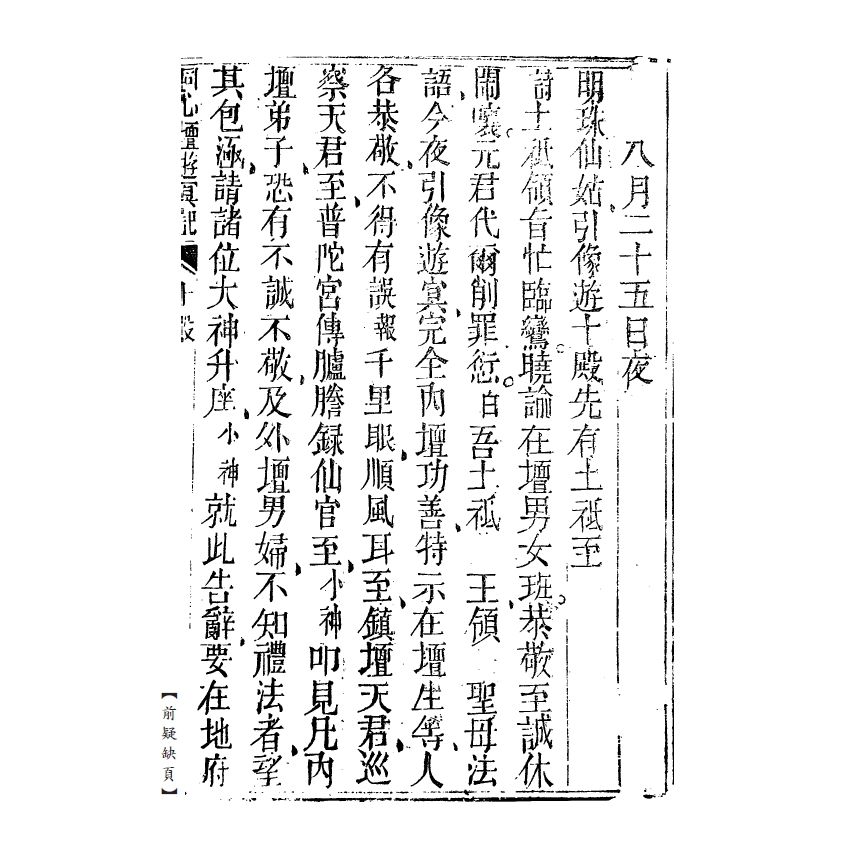 八月二十五日夜
明珠仙姑引像遊十殿先有土祗至
詩土祗領旨忙臨鸞。曉諭在壇男女班。恭敬至誠休
鬧嚷。元君代爾削罪愆。白吾土祗 王領 聖母法
語、今夜引像遊冥、完全內壇功善、特示在壇生等、人
各恭敬、不得有誤報千里眼、順風耳至、鎮壇天君、巡
察天君至、普陀宮傳臚、謄錄仙官至、小神叩見、凡內
壇弟子、恐有不誠不敬、及外壇男婦、不知禮法者、望
其包涵、請諸位大神升座、小神就此告辭、要在地府
洞心壇遊冥記 十殿
【前疑缺頁】